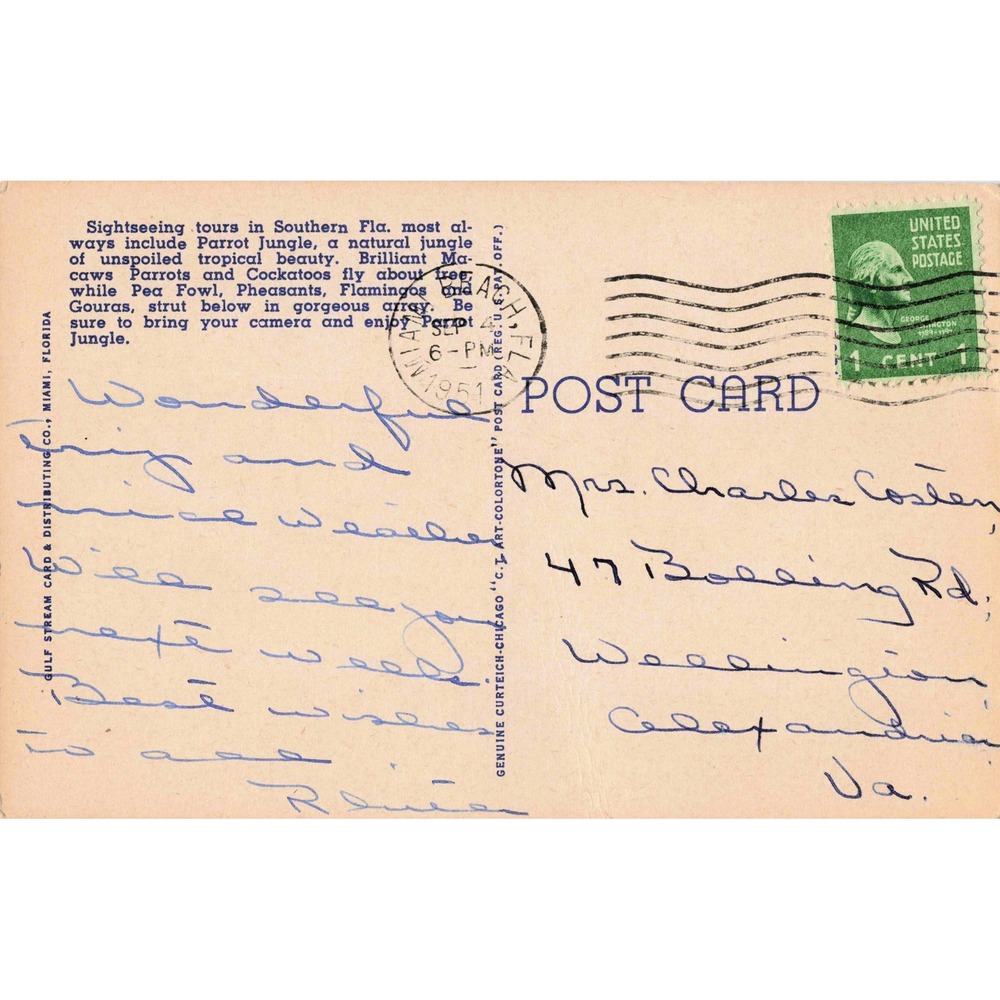 Sightseeing tours in Southern Fla. most al-
ways include Parrot Jungle, a natural jungle
of unspoiled tropical beauty. Brilliant Ma-
caws Parrots and Cockatoos fly about free,
while Pea Fowl, Pheasants, Flamingos and
Gouras, strut below in gorgeous array. Be
sure to bring your camera and enjoy Parrot
Jungle.
GULF STREAM CARD & DISTRIBUTING CO., MIAMI, FLORIDA
Wonderful
trip and
nice weather
Will see you
next week.
Best wishes
to all
GENUINE CURTEICH-CHICAGO "C.T. ART-COLORTONE" POST CARD (REG. U.S. PAT. OFF.)
MIAMI BEACH, FLA.
SEP 4
6-PM
1951
UNITED
STATES
POSTAGE
GEORGE
WASHINGTON
1789-1797
1 CENT 1
POST CARD
Mrs. Charles Costen,
47 Bolling Rd.
Wellington
Alexandria
Va.